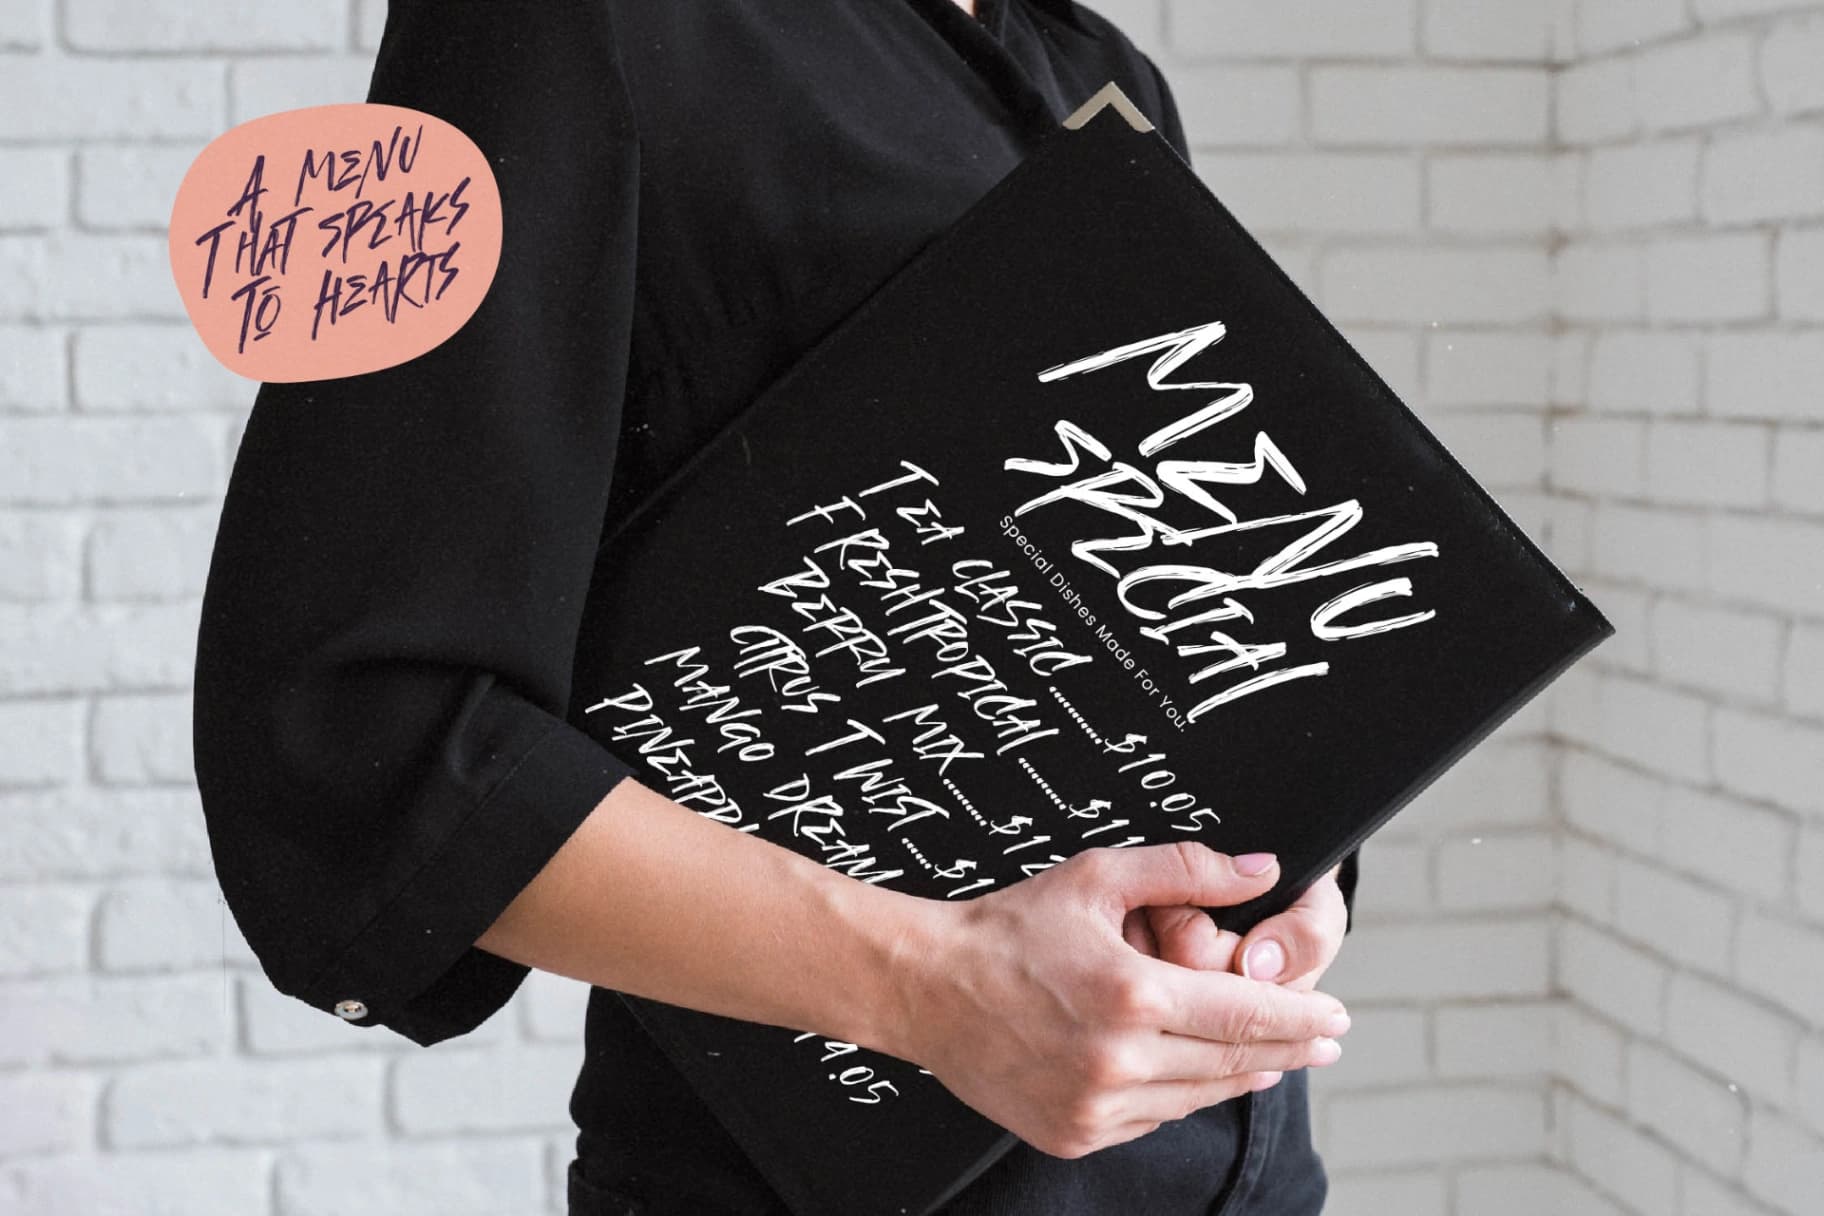 A MENU
THAT SPEAKS
TO HEARTS
MENU
SPECIAL
Special Dishes Made For You.
TEA CLASSIC ..........$10.05
FRESH TROPICAL ..........$11
BERRY MIX..........$12
CITRUS TWIST......$1
MANGO DREAM
PINEAPPL
9.05